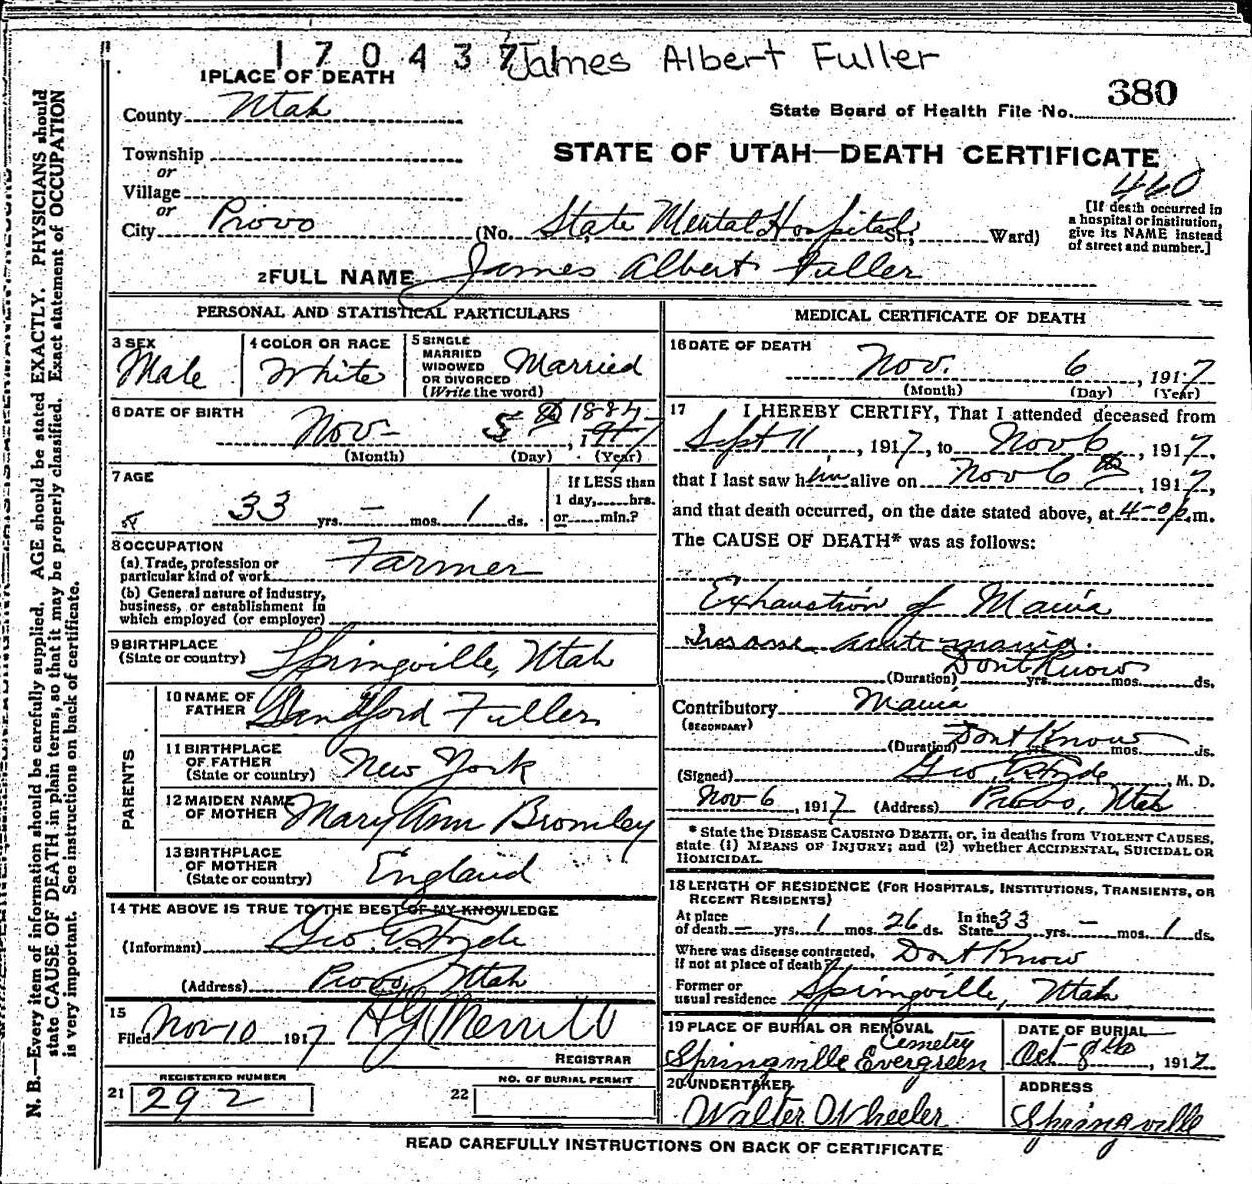 170437 James Albert Fuller
1 PLACE OF DEATH
County Utah
State Board of Health File No. 380
Township
or
Village
or
City Provo
STATE OF UTAH—DEATH CERTIFICATE
440
(No. State Mental Hospital St.; Ward)
[If death occurred in
a hospital or institution,
give its NAME instead
of street and number.]
2 FULL NAME James Albert Fuller
PERSONAL AND STATISTICAL PARTICULARS
3 SEX
Male
4 COLOR OR RACE
White
5 SINGLE
MARRIED
WIDOWED
OR DIVORCED
(Write the word)
Married
6 DATE OF BIRTH
Nov- 5th 1884
1917
(Month) (Day) (Year)
7 AGE
33 yrs. - mos. 1 ds.
If LESS than
1 day, hrs.
or min.?
8 OCCUPATION
(a) Trade, profession or
particular kind of work Farmer
(b) General nature of industry,
business, or establishment in
which employed (or employer)
9 BIRTHPLACE
(State or country) Springville, Utah
PARENTS
10 NAME OF
FATHER Sandford Fuller
11 BIRTHPLACE
OF FATHER
(State or country) New York
12 MAIDEN NAME
OF MOTHER Mary Ann Bromley
13 BIRTHPLACE
OF MOTHER
(State or country) England
14 THE ABOVE IS TRUE TO THE BEST OF MY KNOWLEDGE
(Informant) Geo. E. Hyde
(Address) Provo, Utah
15
Filed Nov 10 1917 H G Merrill
REGISTRAR
REGISTERED NUMBER
21 292
NO. OF BURIAL PERMIT
22
MEDICAL CERTIFICATE OF DEATH
16 DATE OF DEATH
Nov. 6, 1917
(Month) (Day) (Year)
17 I HEREBY CERTIFY, That I attended deceased from
Sept 11, 1917, to Nov 6, 1917,
that I last saw him alive on Nov 6th, 1917,
and that death occurred, on the date stated above, at 4-0 p.m.
The CAUSE OF DEATH* was as follows:
Exhaustion of Mania
Insane acute mania.
Dont Know
(Duration) yrs. mos. ds.
Contributory Mania
(SECONDARY)
(Duration) Dont Know yrs. mos. ds.
(Signed) Geo E Hyde, M. D.
Nov 6, 1917 (Address) Provo, Utah
* State the DISEASE CAUSING DEATH, or, in deaths from VIOLENT CAUSES,
state (1) MEANS OF INJURY; and (2) whether ACCIDENTAL, SUICIDAL OR
HOMICIDAL.
18 LENGTH OF RESIDENCE (FOR HOSPITALS, INSTITUTIONS, TRANSIENTS, OR
RECENT RESIDENTS)
At place
of death - yrs. 1 mos. 26 ds. In the
State 33 yrs. - mos. 1 ds.
Where was disease contracted,
if not at place of death? Dont Know
Former or
usual residence Springville, Utah
19 PLACE OF BURIAL OR REMOVAL
Cemetry
Springville Evergreen
DATE OF BURIAL
Oct-8th, 1917
20 UNDERTAKER
Walter Wheeler
ADDRESS
Springville
READ CAREFULLY INSTRUCTIONS ON BACK OF CERTIFICATE
N. B.—Every item of information should be carefully supplied. AGE should be stated EXACTLY. PHYSICIANS should
state CAUSE OF DEATH in plain terms, so that it may be properly classified. Exact statement of OCCUPATION
is very important. See instructions on back of certificate.